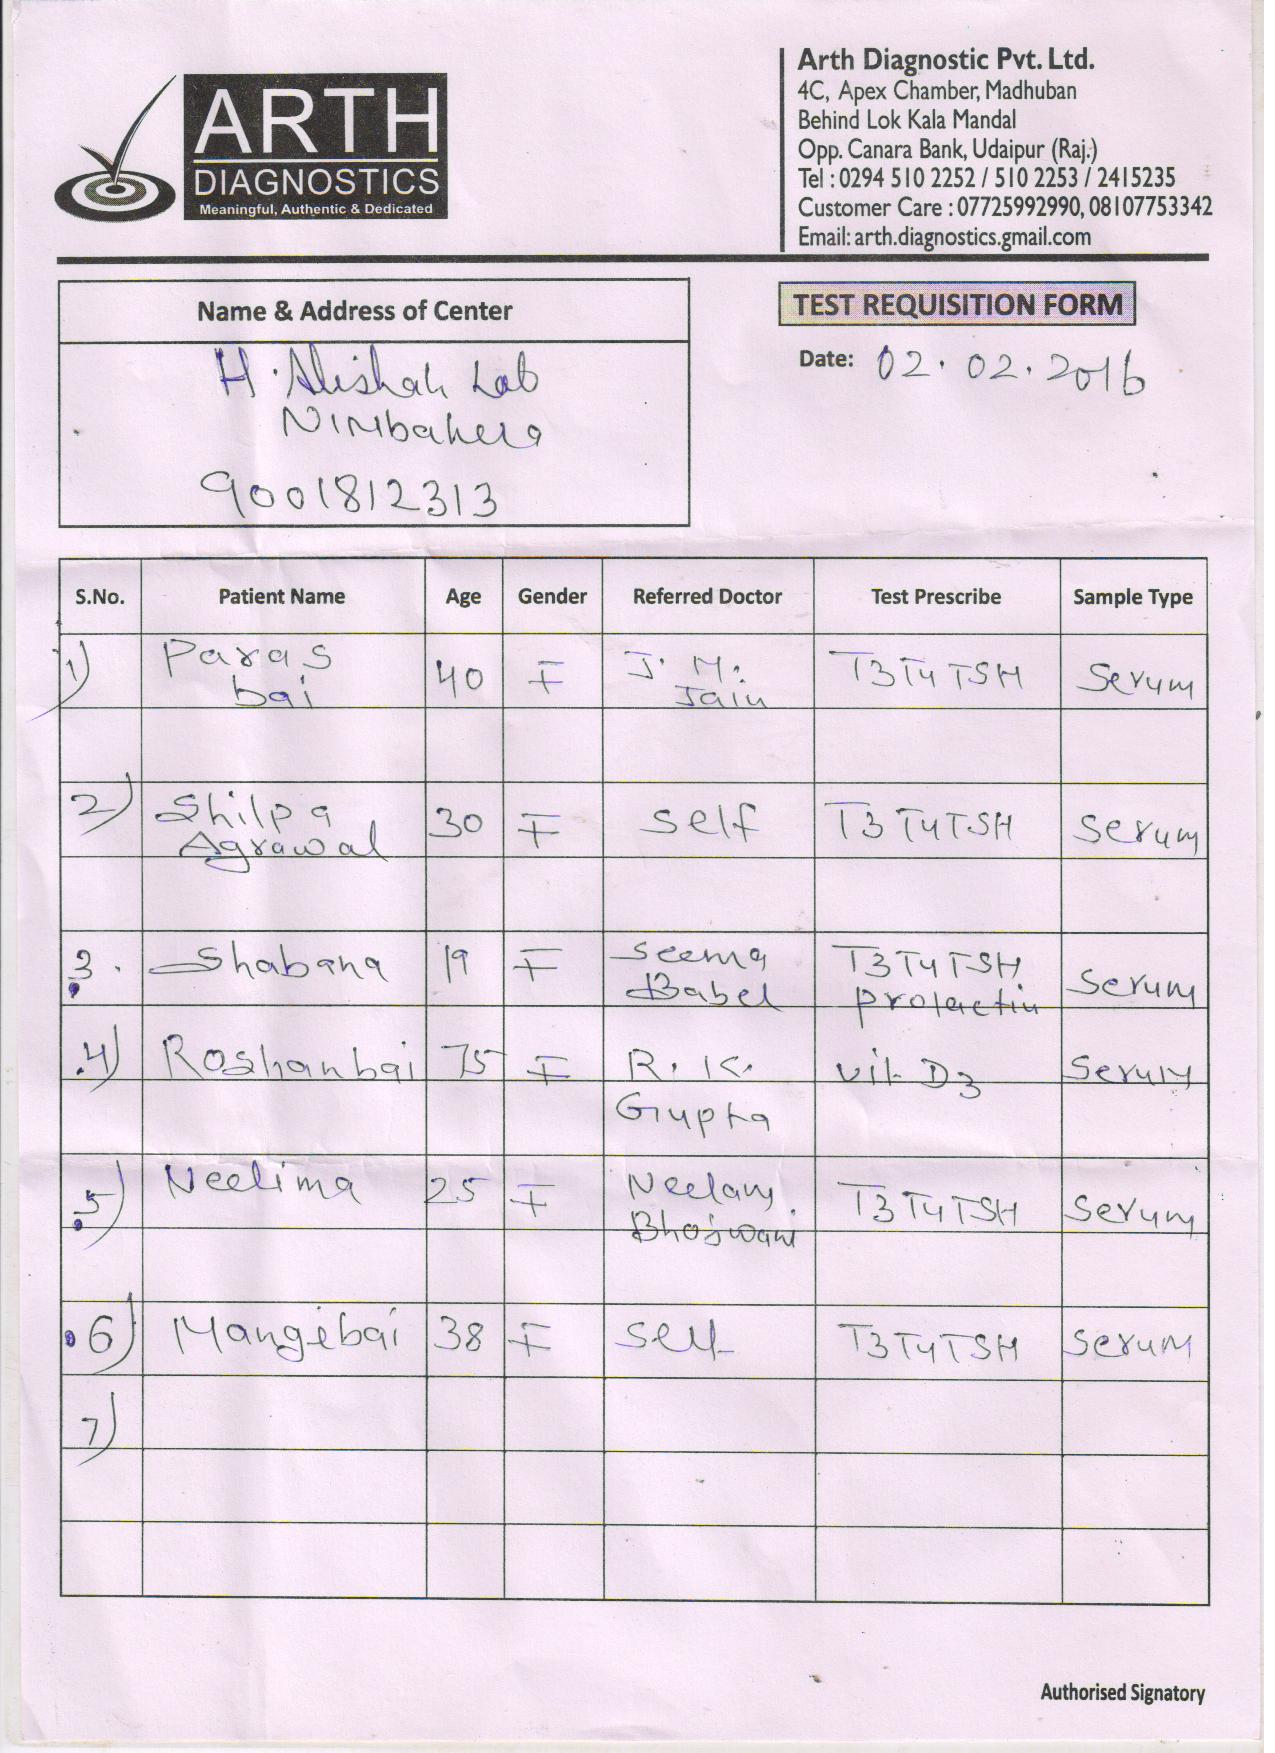 ARTH
DIAGNOSTICS
Meaningful, Authentic & Dedicated
Arth Diagnostic Pvt. Ltd.
4C, Apex Chamber, Madhuban
Behind Lok Kala Mandal
Opp. Canara Bank, Udaipur (Raj.)
Tel : 0294 510 2252 / 510 2253 / 2415235
Customer Care : 07725992990, 08107753342
Email: arth.diagnostics.gmail.com
Name & Address of Center
H. Alishah Lab
Nimbahera
9001812313
TEST REQUISITION FORM
Date: 02.02.2016
S.No. Patient Name Age Gender Referred Doctor Test Prescribe Sample Type
1) Paras bai 40 F J. M. Jain T3 T4 TSH Serum
2) Shilpa Agrawal 30 F Self T3 T4 TSH Serum
3. Shabana 19 F Seema Babel T3 T4 TSH Prolactin Serum
4) Roshanbai 75 F R. K. Gupta Vit D3 Serum
5) Neelima 25 F Neelam Bhojwani T3 T4 TSH Serum
6) Mangibai 38 F Self T3 T4 TSH Serum
7)
Authorised Signatory